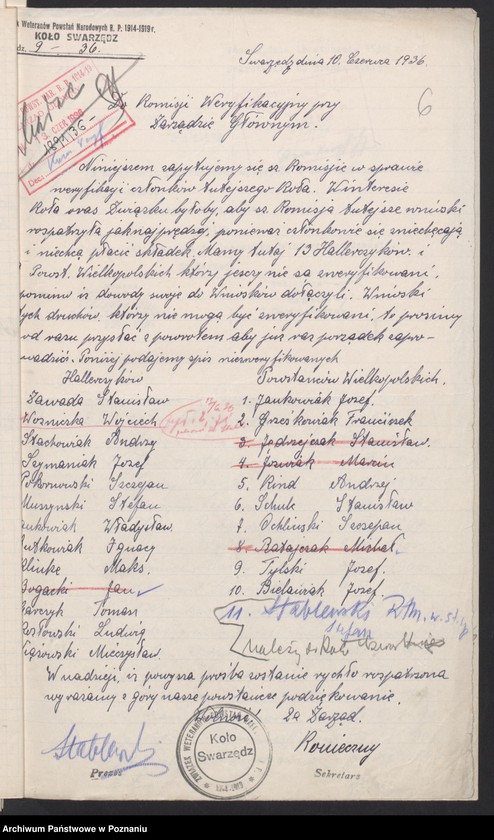 Weteranów Powstań Narodowych R. P. 1914-1919 r.
KOŁO SWARZĘDZ
9 - 36.
Swarzędz dnia 10. Czerwca 1936.
6
Do Komisji Weryfikacyjny przy
Zarządzie Głównym.
Niniejszem zapytujemy się sz. Komisję w sprawie
weryfikacji członków tutejszego Koła. W interesie
Koła oraz Związku byłoby, aby sz. Komisja tutejsze wnioski
rozpatrzyła jaknajprędzej, ponieważ członkowie się zniechęcają
i niechcą płacić składek. Mamy tutaj 13 Hallerczyków i
Powst. Wielkopolskich którzy jeszcze nie są zweryfikowani,
pomimo iż dowody swoje do Wniosków dołączyli. Wnioski
tych druchów, którzy nie mogą być zweryfikowani, to prosimy
od razu przysłać z powrotem aby już raz porządek zapro-
wadzić. Poniżej podajemy spis niezweryfikowanych
Hallerczyków
Powstańców Wielkopolskich.
Zawada Stanisław
1. Jankowiak Józef.
Woźniczka Wojciech
2. Grześkowiak Franciszek
Stachowiak Andrzy
3. Jędrzejczak Stanisław.
Szymaniak Józef
4. Jóźwiak Marcin
Pokornowski Szczepan
5. Rind Andrzej
Muszynski Stefan
6. Schulz Stanisław
Władysław.
7. Ochliński Szczepan
Rutkowiak Ignacy
8. Ratajczak Michał.
Klinke Maks.
9. Tylski Józef.
Bogacki Jan,
10. Bielawiak Józef
Tomasz
11. Stablewski
Kozłowski Ludwig
Stefan
Mieczysław.
Należy do Koła
W nadzieji, iż powyższa prośba zostanie rychło rozpatrzona
wyrażamy z góry nasze powstańcze podziękowanie.
Za Zarząd.
Stablewski
Koło
Swarzędz
Konieczny
Prezes
Sekretarz
Archiwum Państwowe w Poznaniu